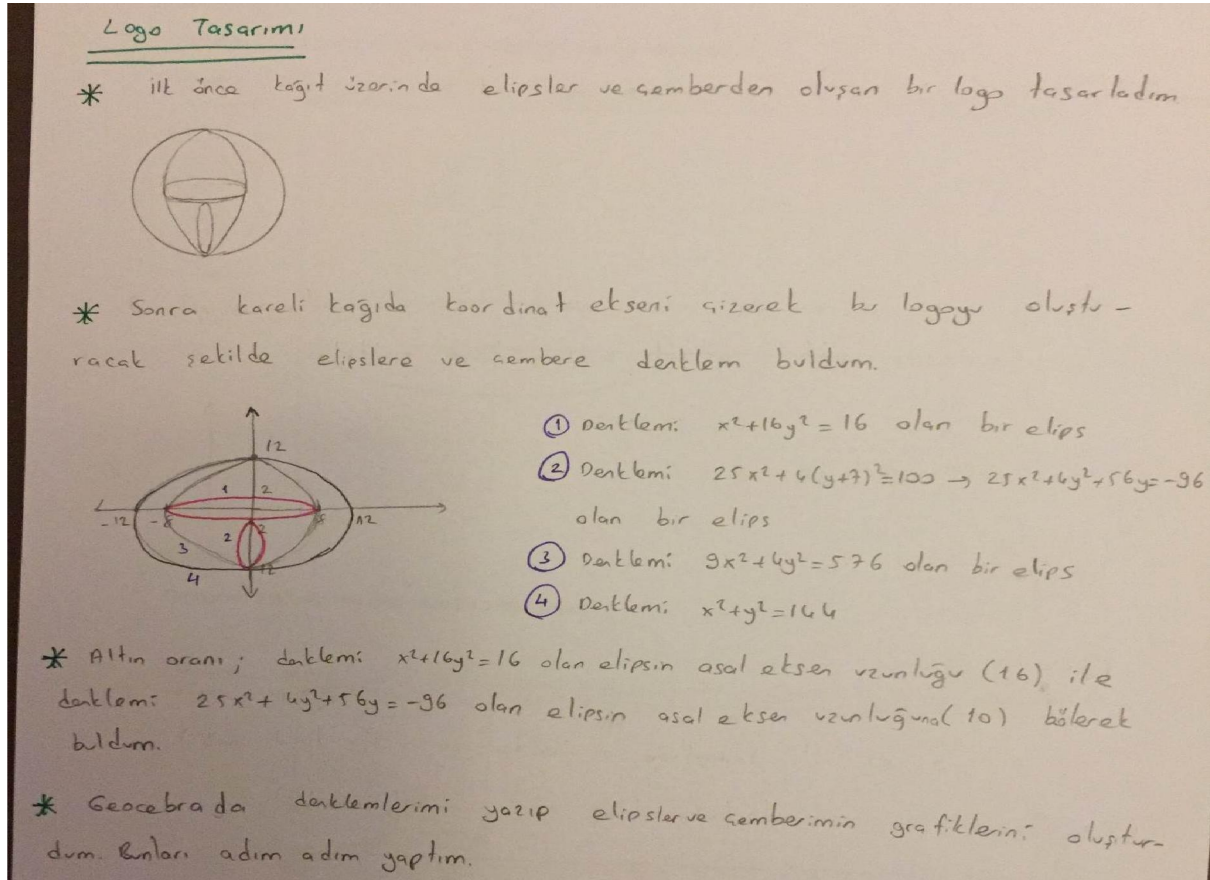 Logo Tasarımı
* ilk önce kağıt üzerinde elipsler ve çemberden oluşan bir logo tasarladım
* Sonra kareli kağıda koordinat ekseni çizerek bu logoyu oluştu-
racak şekilde elipslere ve çembere denklem buldum.
12
1 2
-12 -8 8 12
2 2
3
4 -12
① Denklemi x²+16y²=16 olan bir elips
② Denklemi 25x²+4(y+7)²=100 → 25x²+4y²+56y=-96
olan bir elips
③ Denklemi 9x²+4y²=576 olan bir elips
④ Denklemi x²+y²=144
* Altın oranı; denklemi x²+16y²=16 olan elipsin asal eksen uzunluğu (16) ile
denklemi 25x²+4y²+56y=-96 olan elipsin asal eksen uzunluğuna(10) bölerek
buldum.
* Geocebrada denklemlerimi yazıp elipsler ve çemberimin grafiklerini oluştur-
dum. Bunları adım adım yaptım.